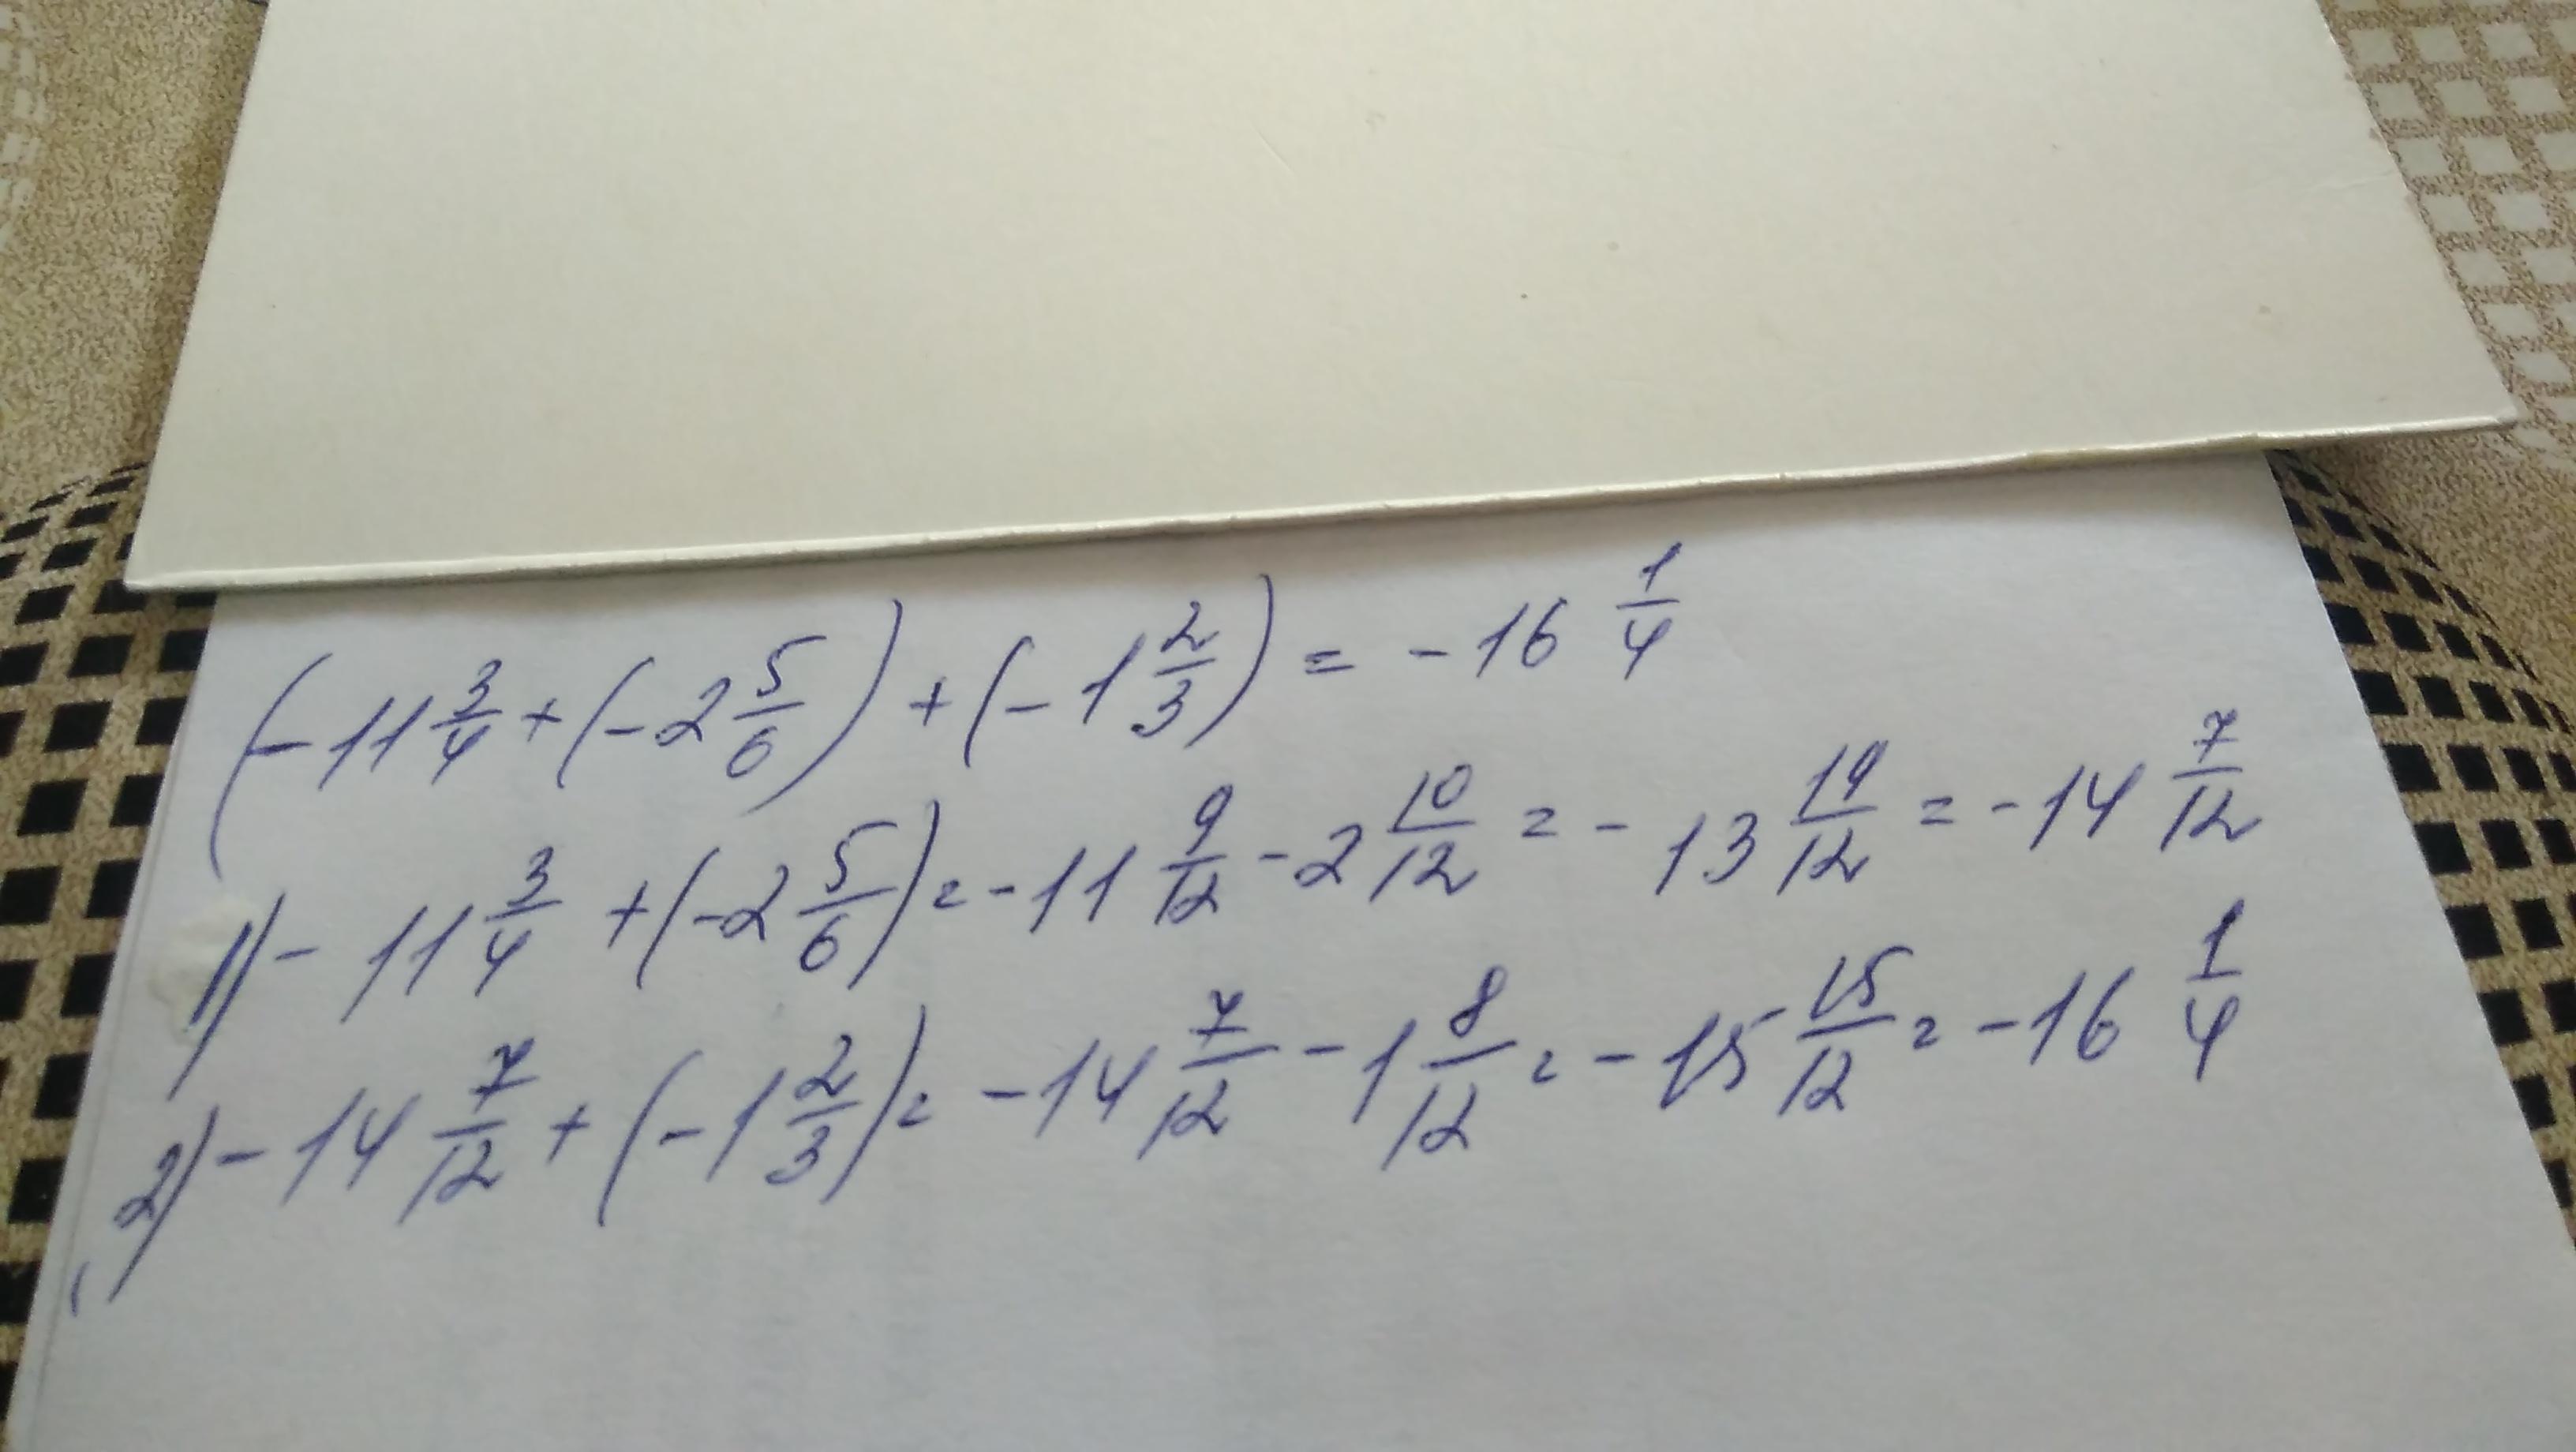 (-11 3/4 + (-2 5/6) + (-1 2/3) = -16 1/4
1) - 11 3/4 + (-2 5/6) = -11 9/12 - 2 10/12 = - 13 19/12 = -14 7/12
2) - 14 7/12 + (-1 2/3) = -14 7/12 - 1 8/12 = - 15 15/12 = -16 1/4